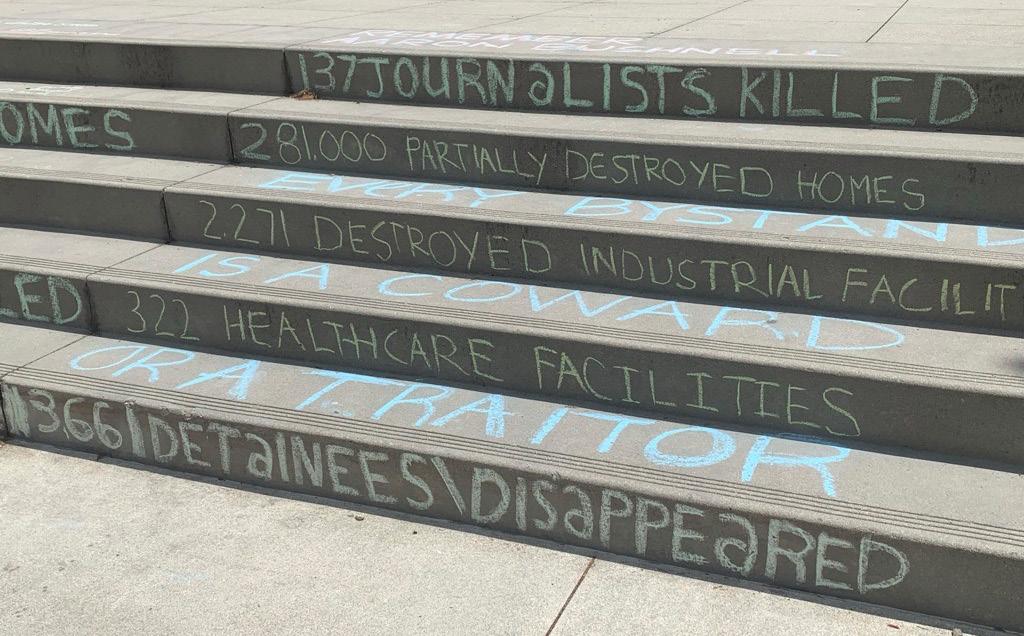 REMEMBER
AARON BUSHNELL
137 JOURNALISTS KILLED
OMES
281.000 PARTIALLY DESTROYED HOMES
EVERY BYSTAND
2.271 DESTROYED INDUSTRIAL FACILIT
IS A COWARD
LED
322 HEALTHCARE FACILITIES
OR A TRAITOR
13661 DETAINEES\DISAPPEARED